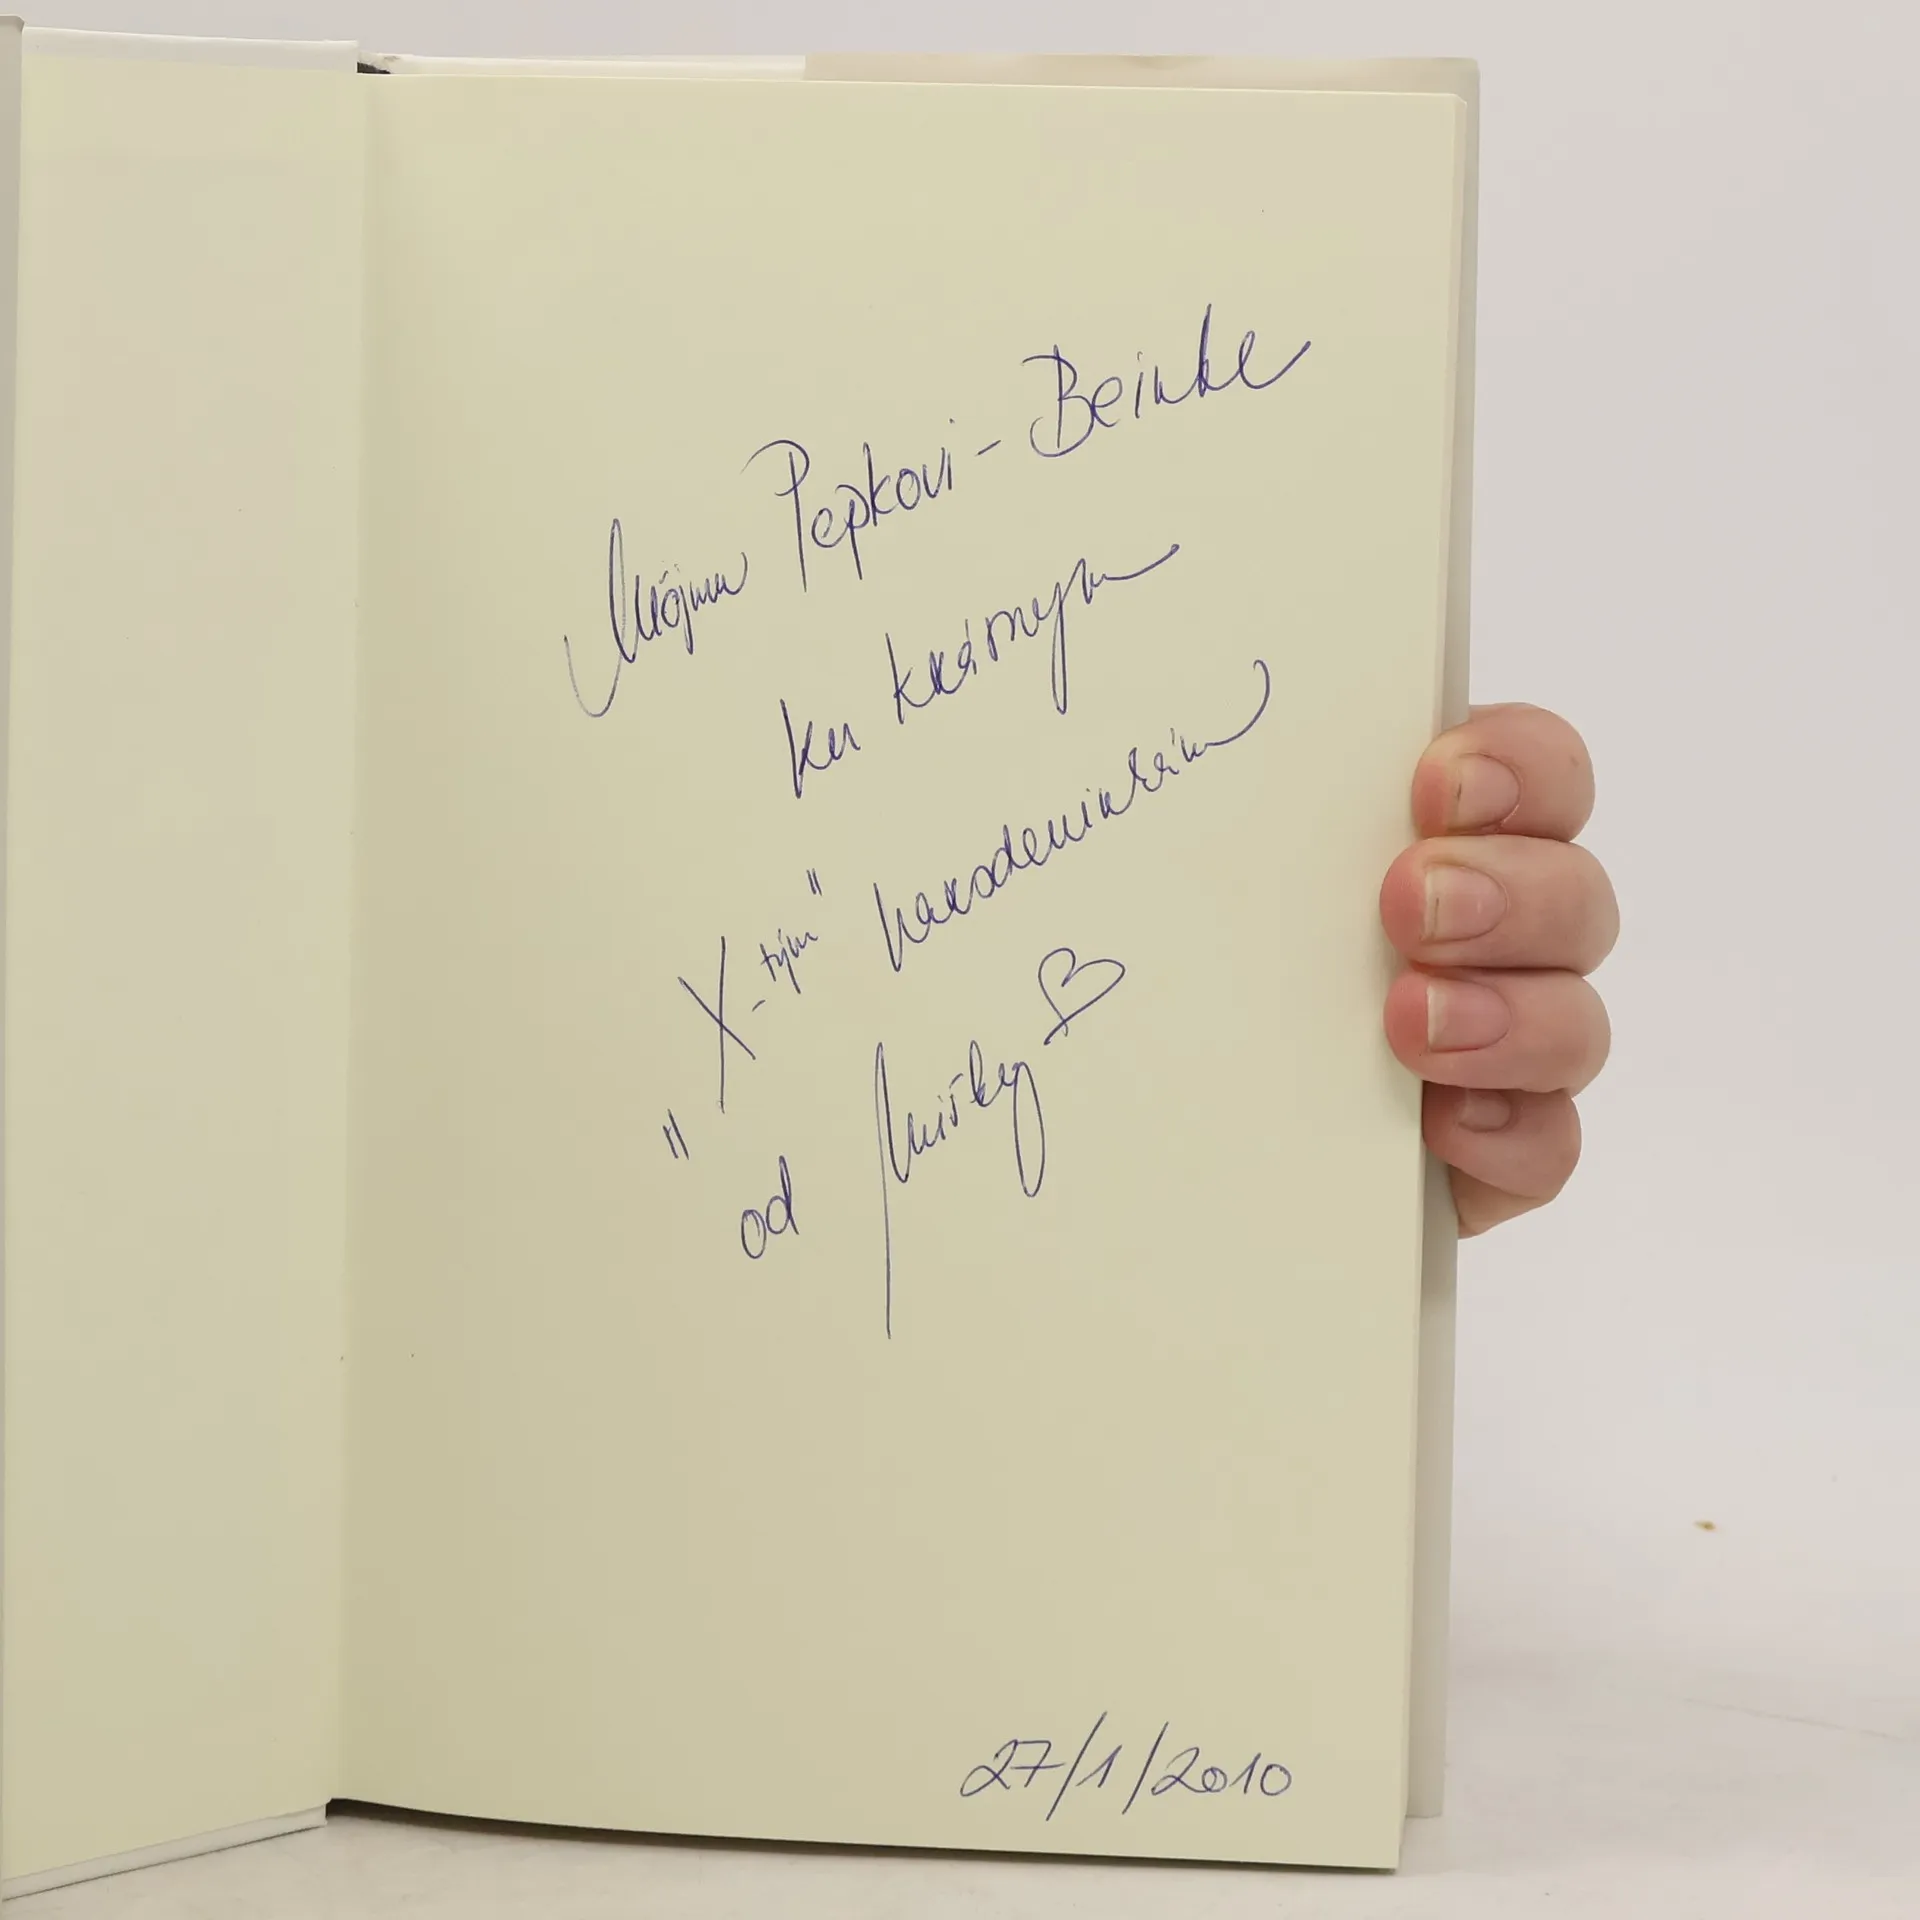 Môjmu Pepkovi - Beinke
ku krásnym
"X-tým" narodeninám
od Mišky
27/1/2010